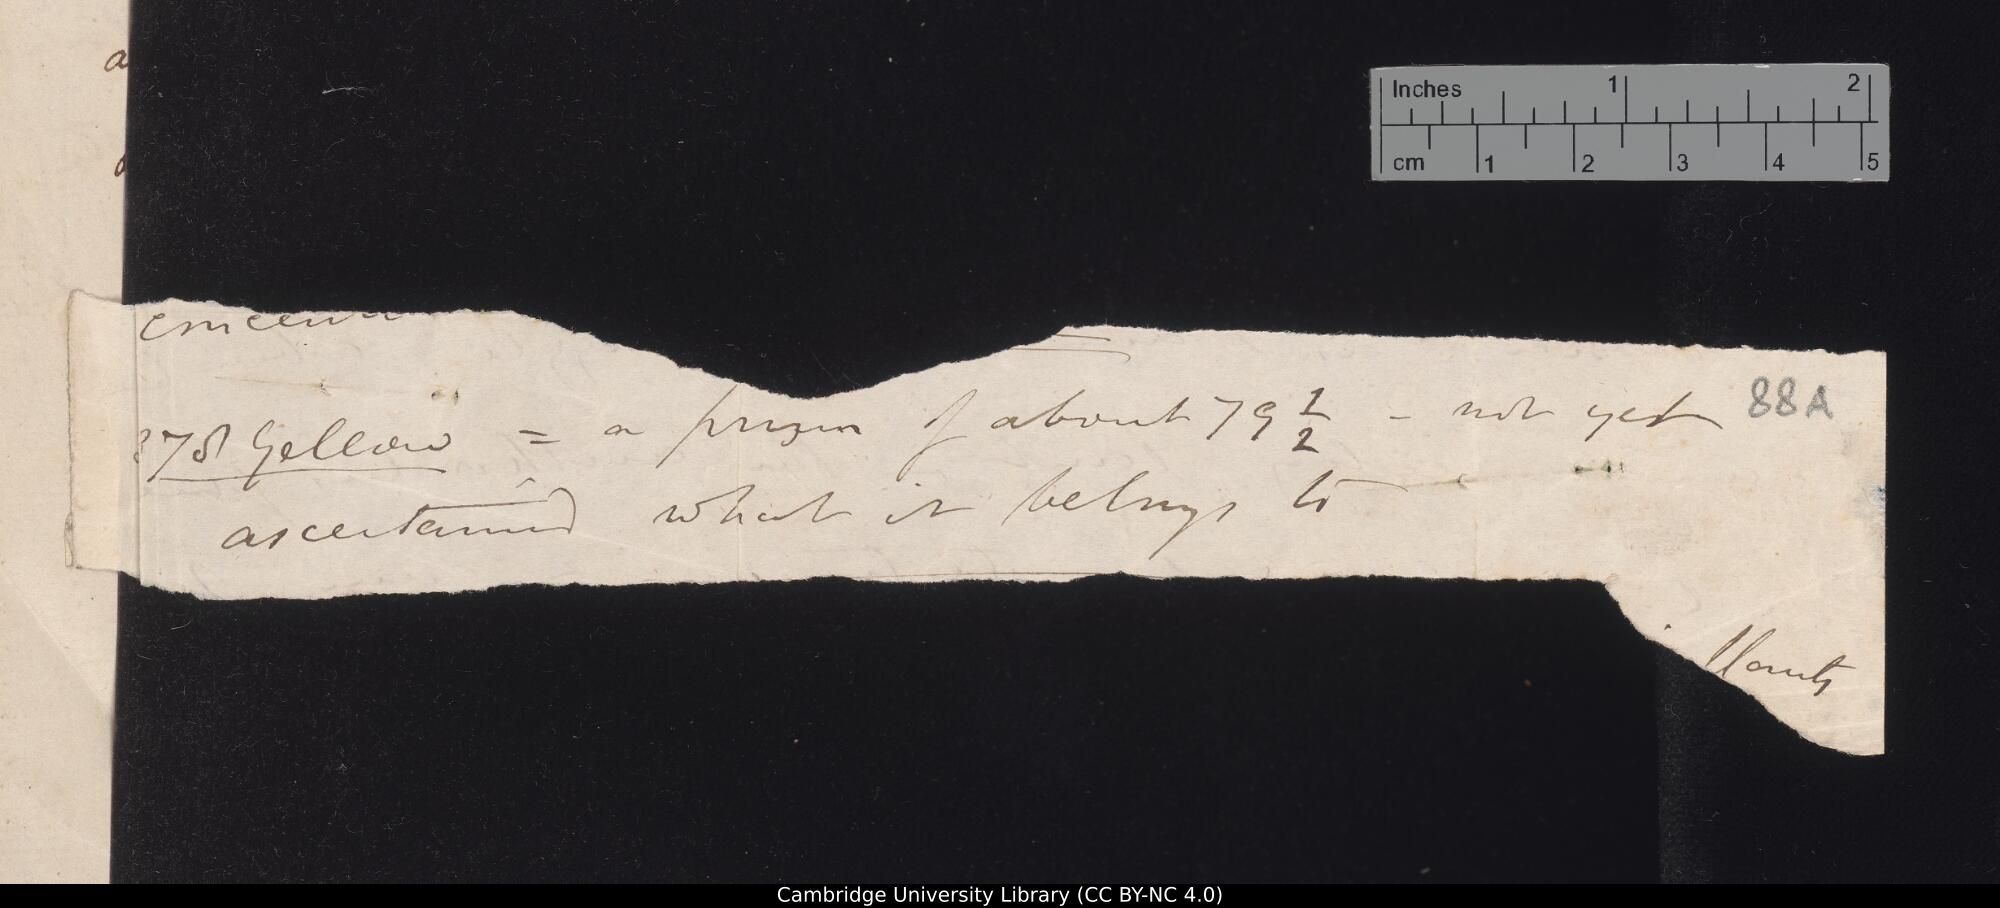 a
Inches 1 2
cm 1 2 3 4 5
88A
378 Yellow = a prism of about 79 1/2 - not yet
ascertained what it belongs to
Cambridge University Library (CC BY-NC 4.0)